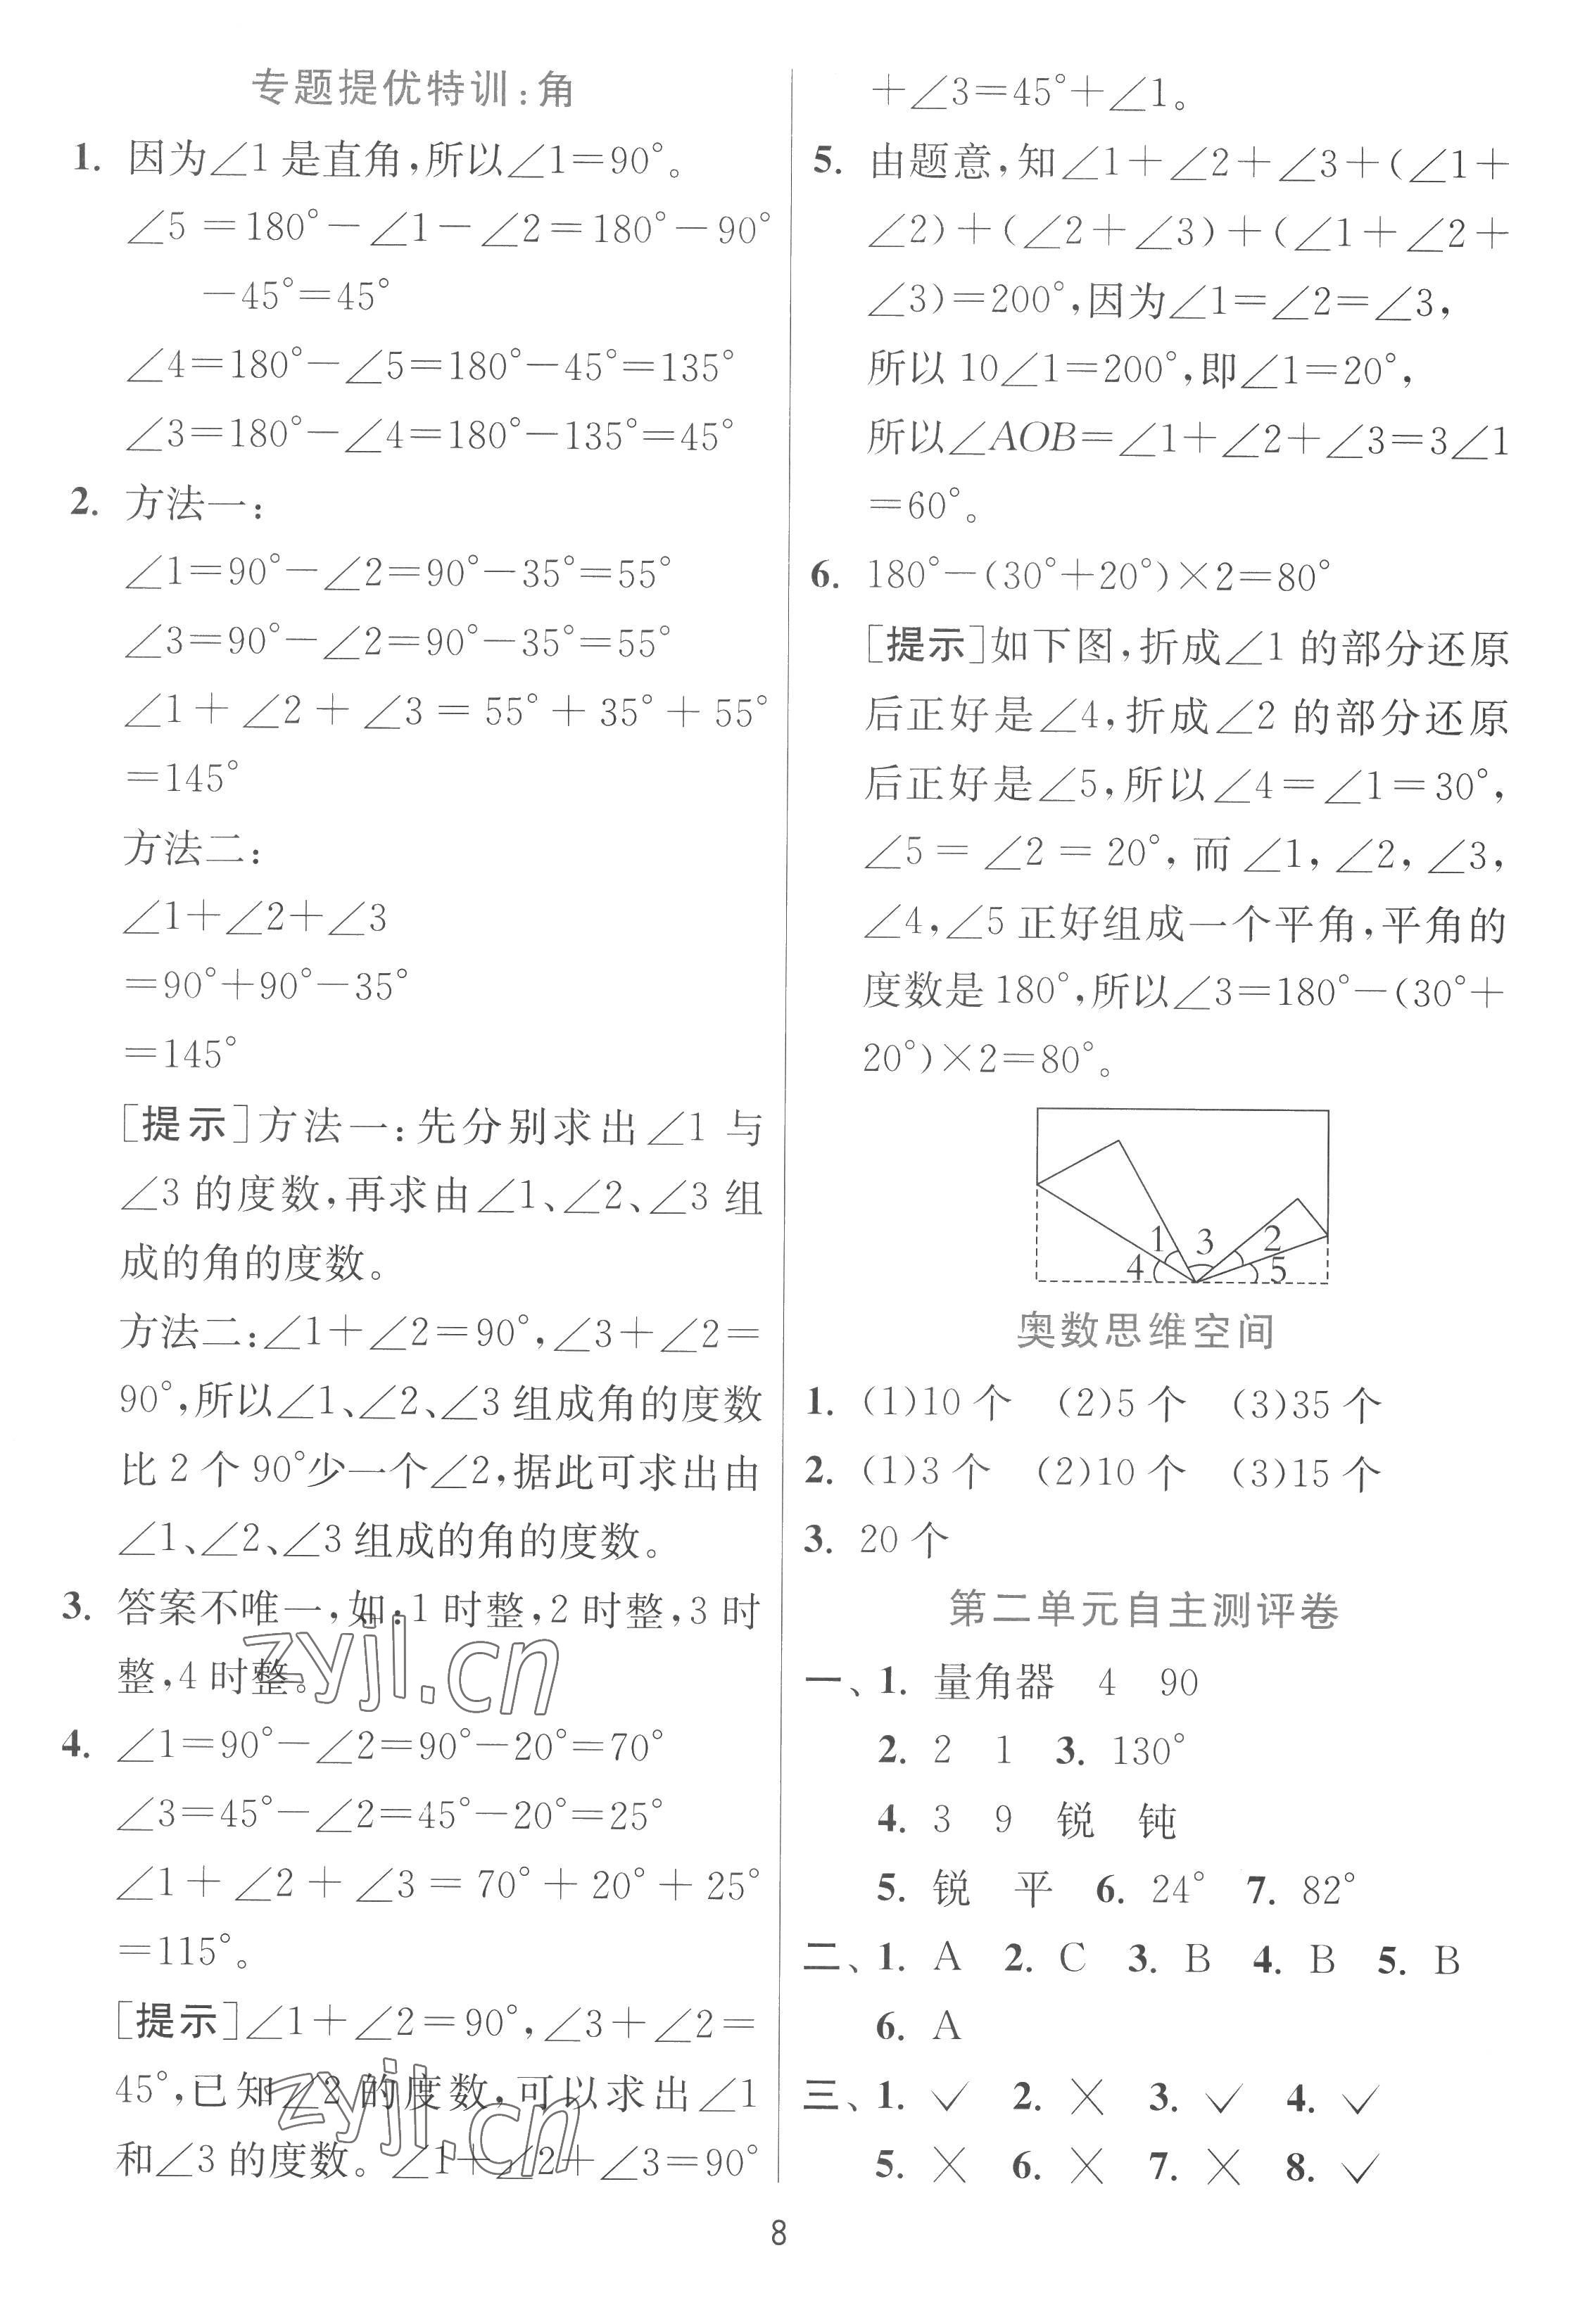 专题提优特训:角
1. 因为∠1是直角,所以∠1=90°。
∠5=180°-∠1-∠2=180°-90°
-45°=45°
∠4=180°-∠5=180°-45°=135°
∠3=180°-∠4=180°-135°=45°
2. 方法一:
∠1=90°-∠2=90°-35°=55°
∠3=90°-∠2=90°-35°=55°
∠1+∠2+∠3=55°+35°+55°
=145°
方法二:
∠1+∠2+∠3
=90°+90°-35°
=145°
[提示]方法一:先分别求出∠1与
∠3的度数,再求由∠1、∠2、∠3组
成的角的度数。
方法二:∠1+∠2=90°,∠3+∠2=
90°,所以∠1、∠2、∠3组成角的度数
比2个90°少一个∠2,据此可求出由
∠1、∠2、∠3组成的角的度数。
3. 答案不唯一,如:1时整,2时整,3时
整,4时整。
zyjl.cn
4. ∠1=90°-∠2=90°-20°=70°
∠3=45°-∠2=45°-20°=25°
∠1+∠2+∠3=70°+20°+25°
=115°。
[提示]∠1+∠2=90°,∠3+∠2=
45°,已知∠2的度数,可以求出∠1
和∠3的度数。∠1+∠2+∠3=90°
zyjl.cn
+∠3=45°+∠1。
5. 由题意,知∠1+∠2+∠3+(∠1+
∠2)+(∠2+∠3)+(∠1+∠2+
∠3)=200°,因为∠1=∠2=∠3,
所以10∠1=200°,即∠1=20°,
所以∠AOB=∠1+∠2+∠3=3∠1
=60°。
6. 180°-(30°+20°)×2=80°
[提示]如下图,折成∠1的部分还原
后正好是∠4,折成∠2的部分还原
后正好是∠5,所以∠4=∠1=30°,
∠5=∠2=20°,而∠1,∠2,∠3,
∠4,∠5正好组成一个平角,平角的
度数是180°,所以∠3=180°-(30°+
20°)×2=80°。
1 3 2
4 5
奥数思维空间
1. (1)10个 (2)5个 (3)35个
2. (1)3个 (2)10个 (3)15个
3. 20个
第二单元自主测评卷
一、1. 量角器 4 90
2. 2 1 3. 130°
4. 3 9 锐 钝
5. 锐 平 6. 24° 7. 82°
二、1. A 2. C 3. B 4. B 5. B
6. A
三、1. ✓ 2. × 3. ✓ 4. ✓
5. × 6. × 7. × 8. ✓
8